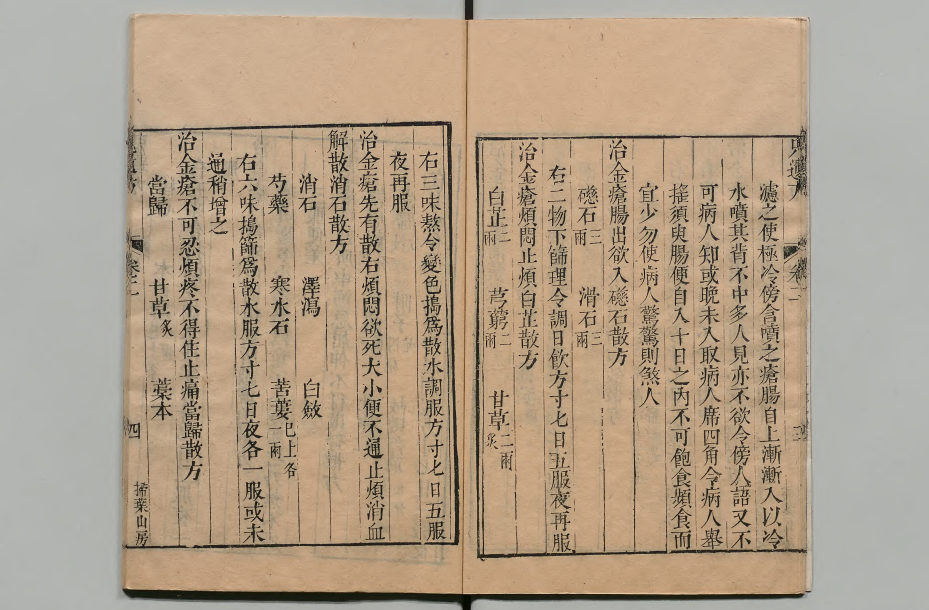 濾之使極冷傍含噴之瘡腸自上漸漸入以冷
水噴其背不中多人見亦不欲令傍人語又不
可病人知或晚未入取病人席四角令病人舉
搖須臾腸便自入十日之內不可飽食頻食而
宜少勿使病人驚驚則煞人
治金瘡腸出欲入磁石散方
磁石三兩 滑石三兩
右二物下篩理令調日飲方寸匕日五服夜再服
治金瘡煩悶止煩白芷散方
白芷二兩 芎藭二兩 甘草二兩炙
右三味熬令變色搗為散水調服方寸匕日五服
夜再服
治金瘡先有散石煩悶欲死大小便不通止煩消血
解散消石散方
消石 澤瀉 白斂
芍藥 寒水石 苦蔞已上各一兩
右六味搗篩為散水服方寸匕日夜各一服或未
通稍增之
治金瘡不可忍煩疼不得住止痛當歸散方
當歸 甘草炙 藁本
四
掃葉山房